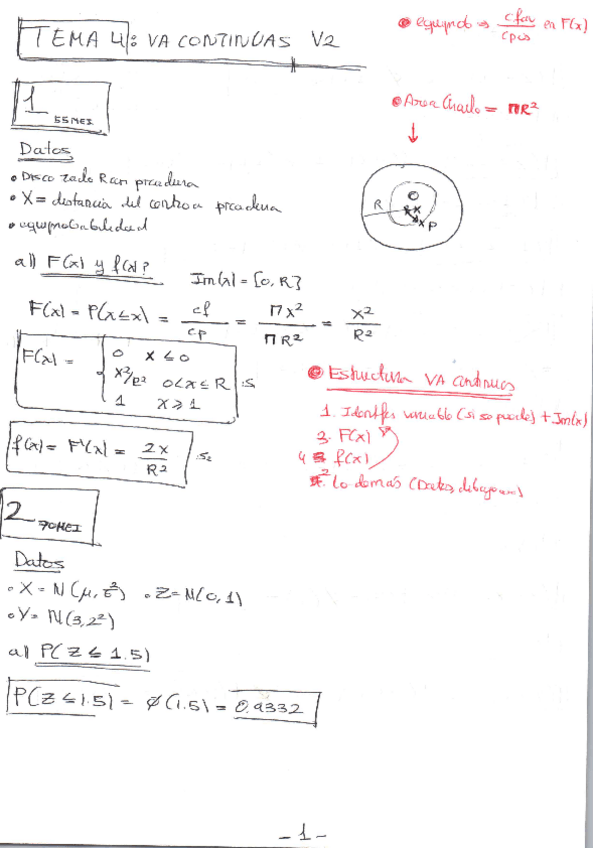 TEMA 4: VA CONTINUAS V2
• equiprob → cfav/cpos en F(x)
• Area Circulo = πR²
1
55MEI
Datos
• Disco radio R con picadura
• X = distancia del centro a picadura
• equiprobabilidad
O
R
x
P
a)) F(x) y f(x)?
Im(x) = [0, R}
F(x) = P(X ≤ x) = cf/cp = πx²/πR² = x²/R²
F(x) =
0 x ≤ 0
x²/R² 0 < x ≤ R
1 x ≥ 1
f(x) = F'(x) = 2x/R²
• Estructura VA continuas
1. Identifcar variable (si se puede) + Im(x)
3. F(x)
4 f(x)
2 Lo demás (Datos, dibujo
2
70MEI
Datos
• X = N(μ, σ²) • Z = N(0, 1)
• Y = N(3, 2²)
a)) P(Z ≤ 1.5)
P(Z ≤ 1.5) = φ(1.5) = 0.9332
- 1 -